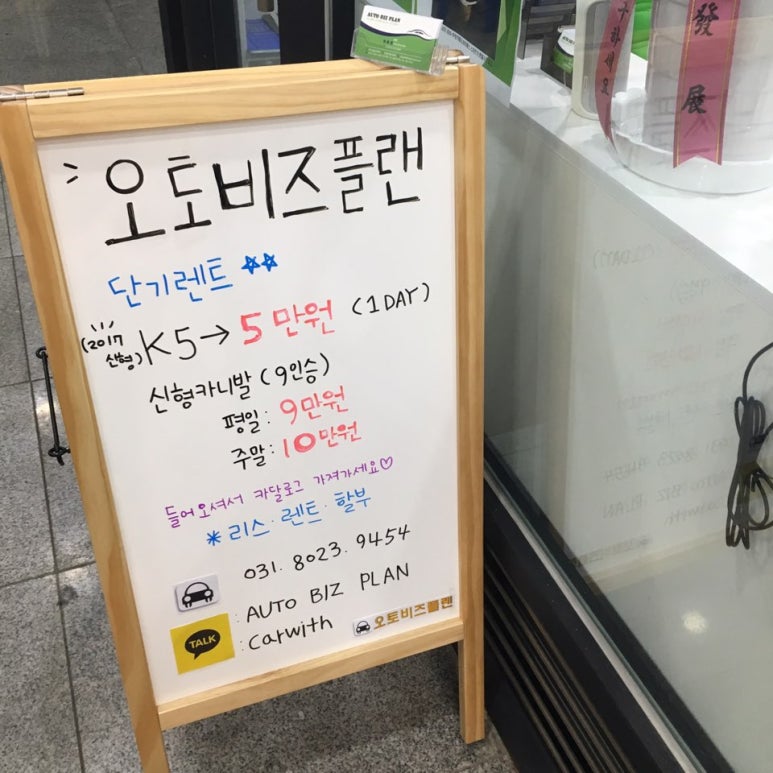 AUTO BIZ PLAN
發展
구하세요
오토비즈플랜
단기렌트 ☆☆
(2017 신형) K5→ 5만원 (1DAY)
신형카니발 (9인승)
평일: 9만원
주말: 10만원
들어오셔서 카달로그 가져가세요♡
*리스·렌트·할부
031. 8023. 9454
: AUTO BIZ PLAN
TALK : carwith
오토비즈플랜